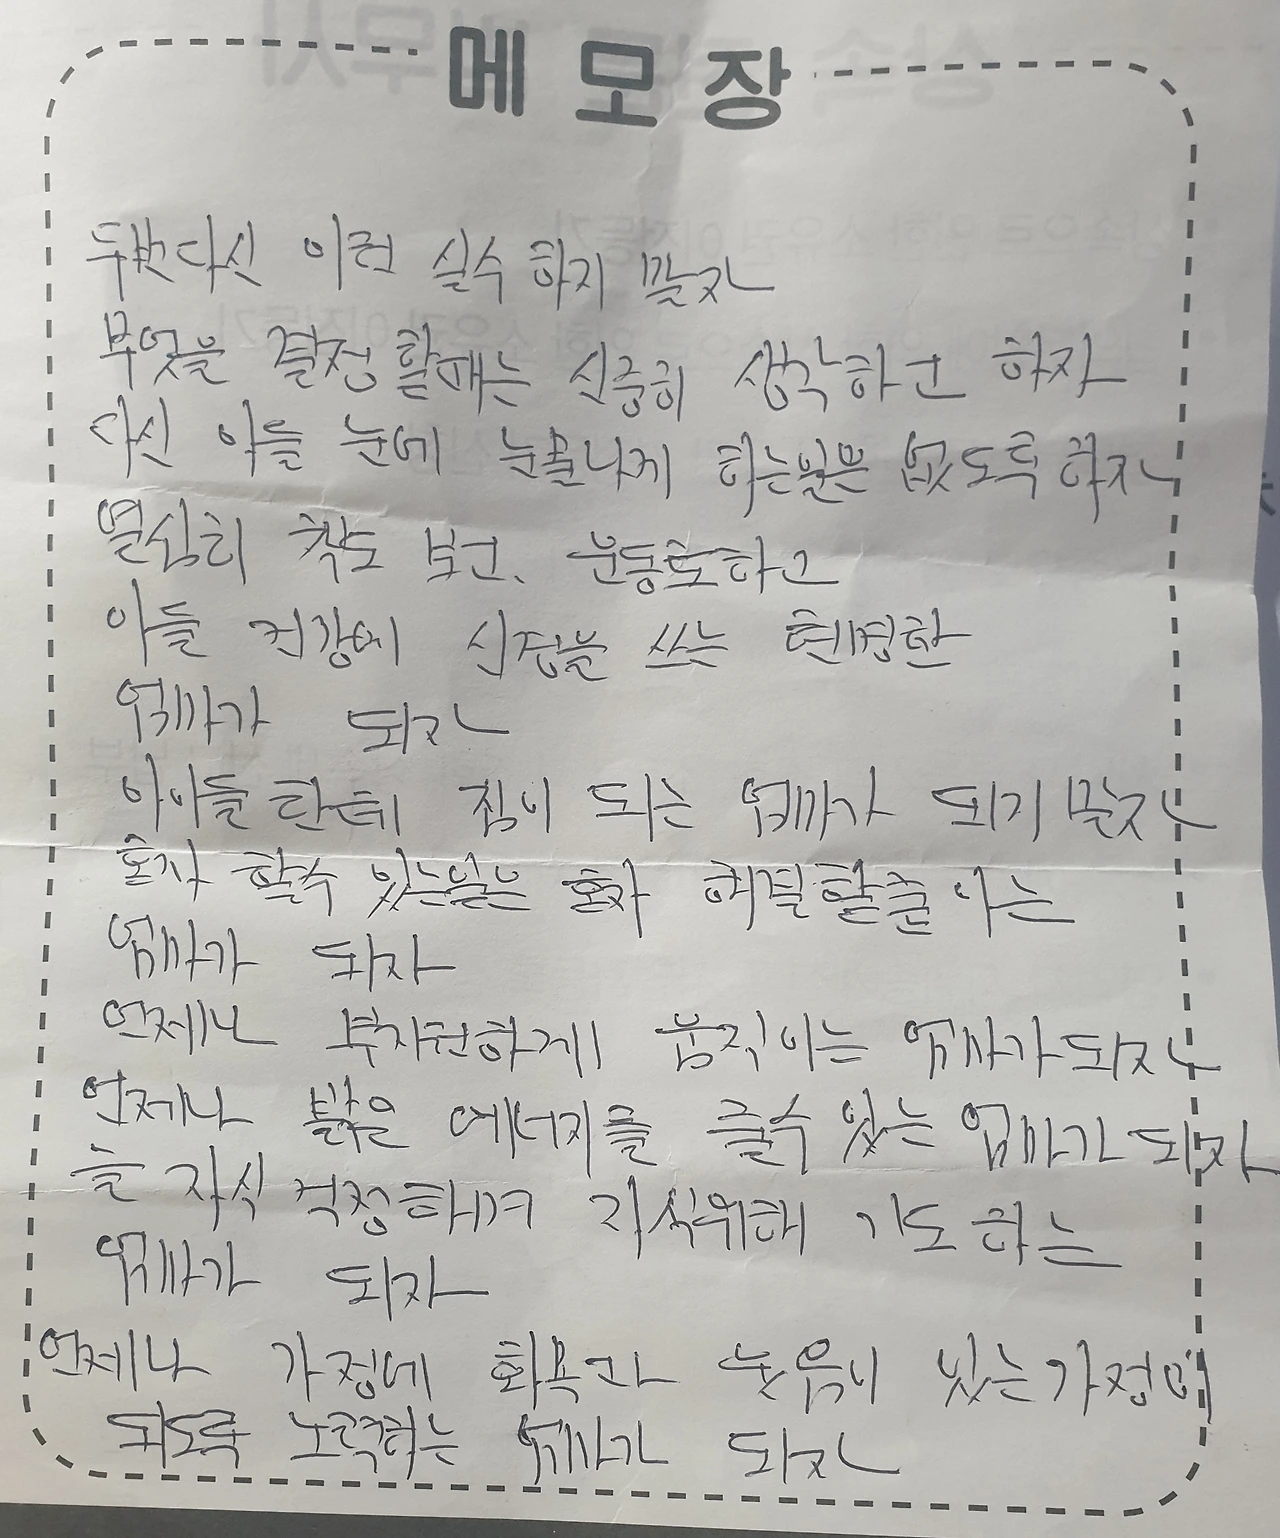 메모장
두번다신 이런 실수 하지 말자
무엇을 결정 할때는 신중히 생각하고 하자
다신 아들 눈에 눈물나게 하는일은 없도록 하자
열심히 책도 보고, 운동도하고
아들 건강에 신경을 쓰는 현명한
엄마가 되자
아이들한테 짐이 되는 엄마가 되지 말자
혼자 할수 있는일은 혼자 해결할줄 아는
엄마가 되자
언제나 부지런하게 움직이는 엄마가 되자
언제나 밝은 에너지를 줄수 있는 엄마가 되자
늘 자식 걱정하며 자식위해 기도 하는
엄마가 되자
언제나 가정에 화목과 웃음이 있는 가정이
되도록 노력하는 엄마가 되자